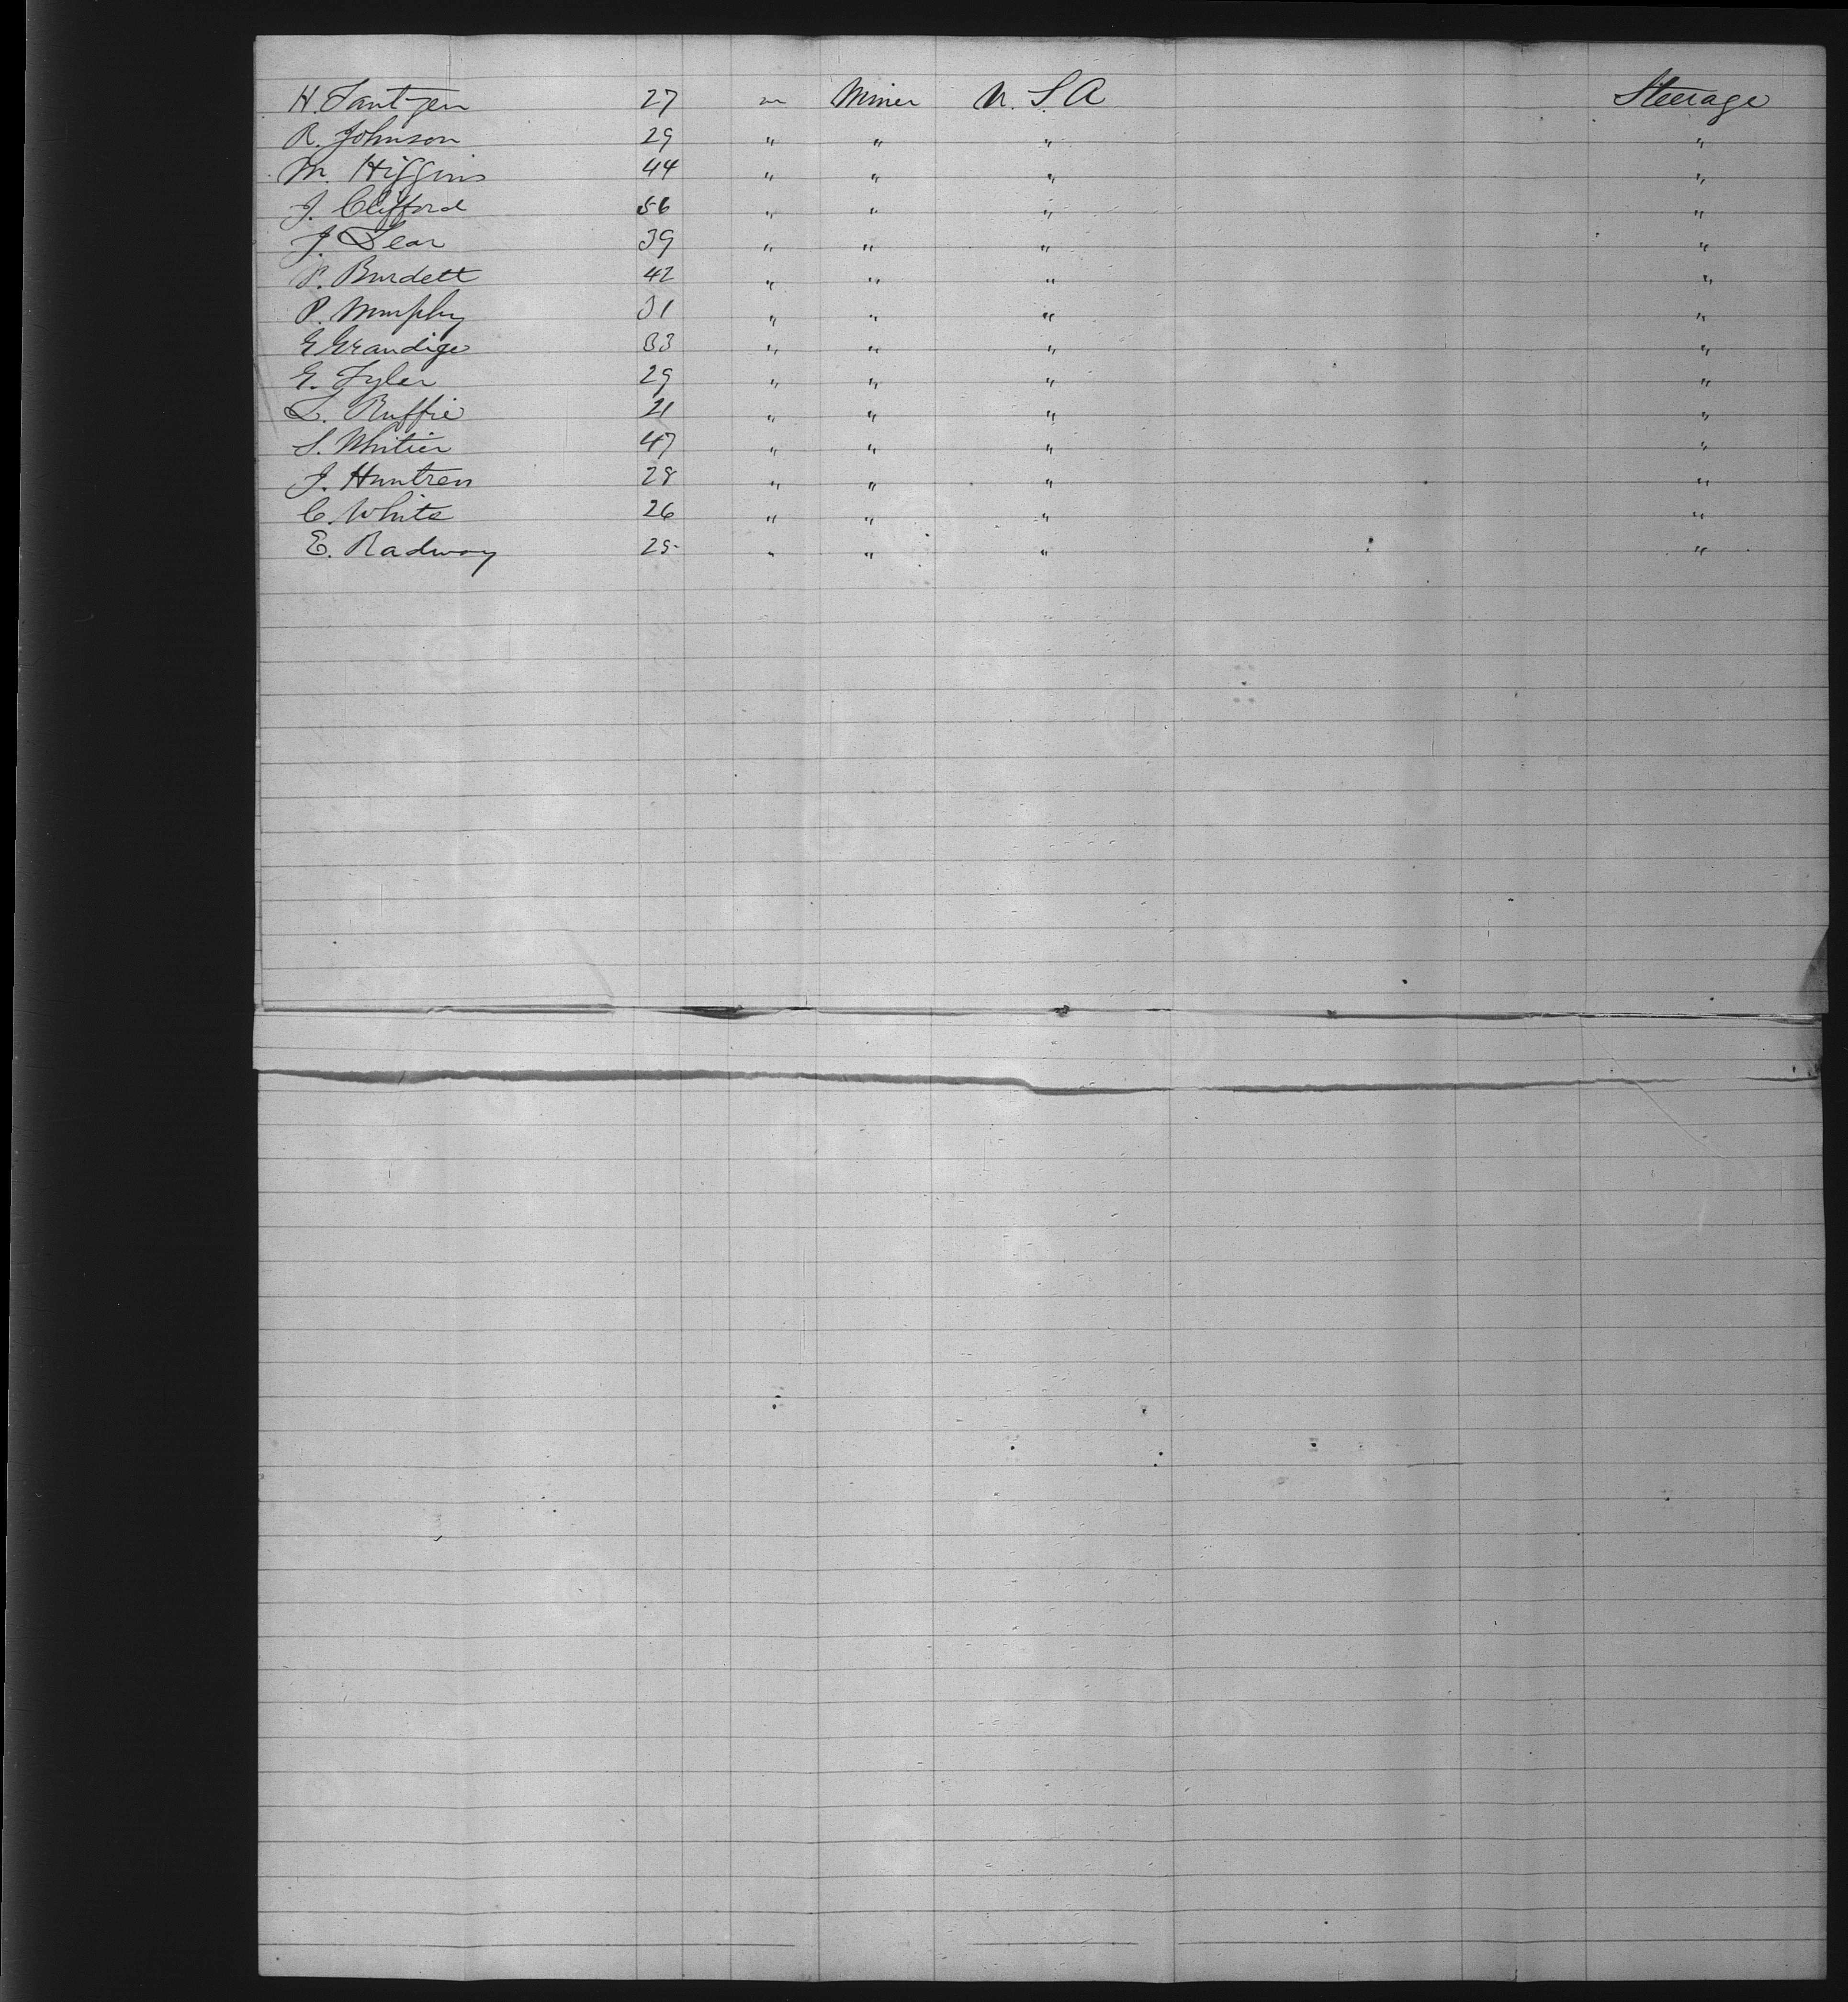 H. Tantzen 27 m Miner U.S.A Steerage
R. Johnson 29 " " " "
M. Higgins 44 " " " "
J. Clifford 56 " " " "
J. Lear 39 " " " "
P. Burdett 42 " " " "
P. Murphy 31 " " " "
E Grandige 33 " " " "
E. Tyler 29 " " " "
L. Ruffie 21 " " " "
S. Whitier 47 " " " "
J. Huntren 28 " " " "
C. White 26 " " " "
E. Radway 25 " " " "